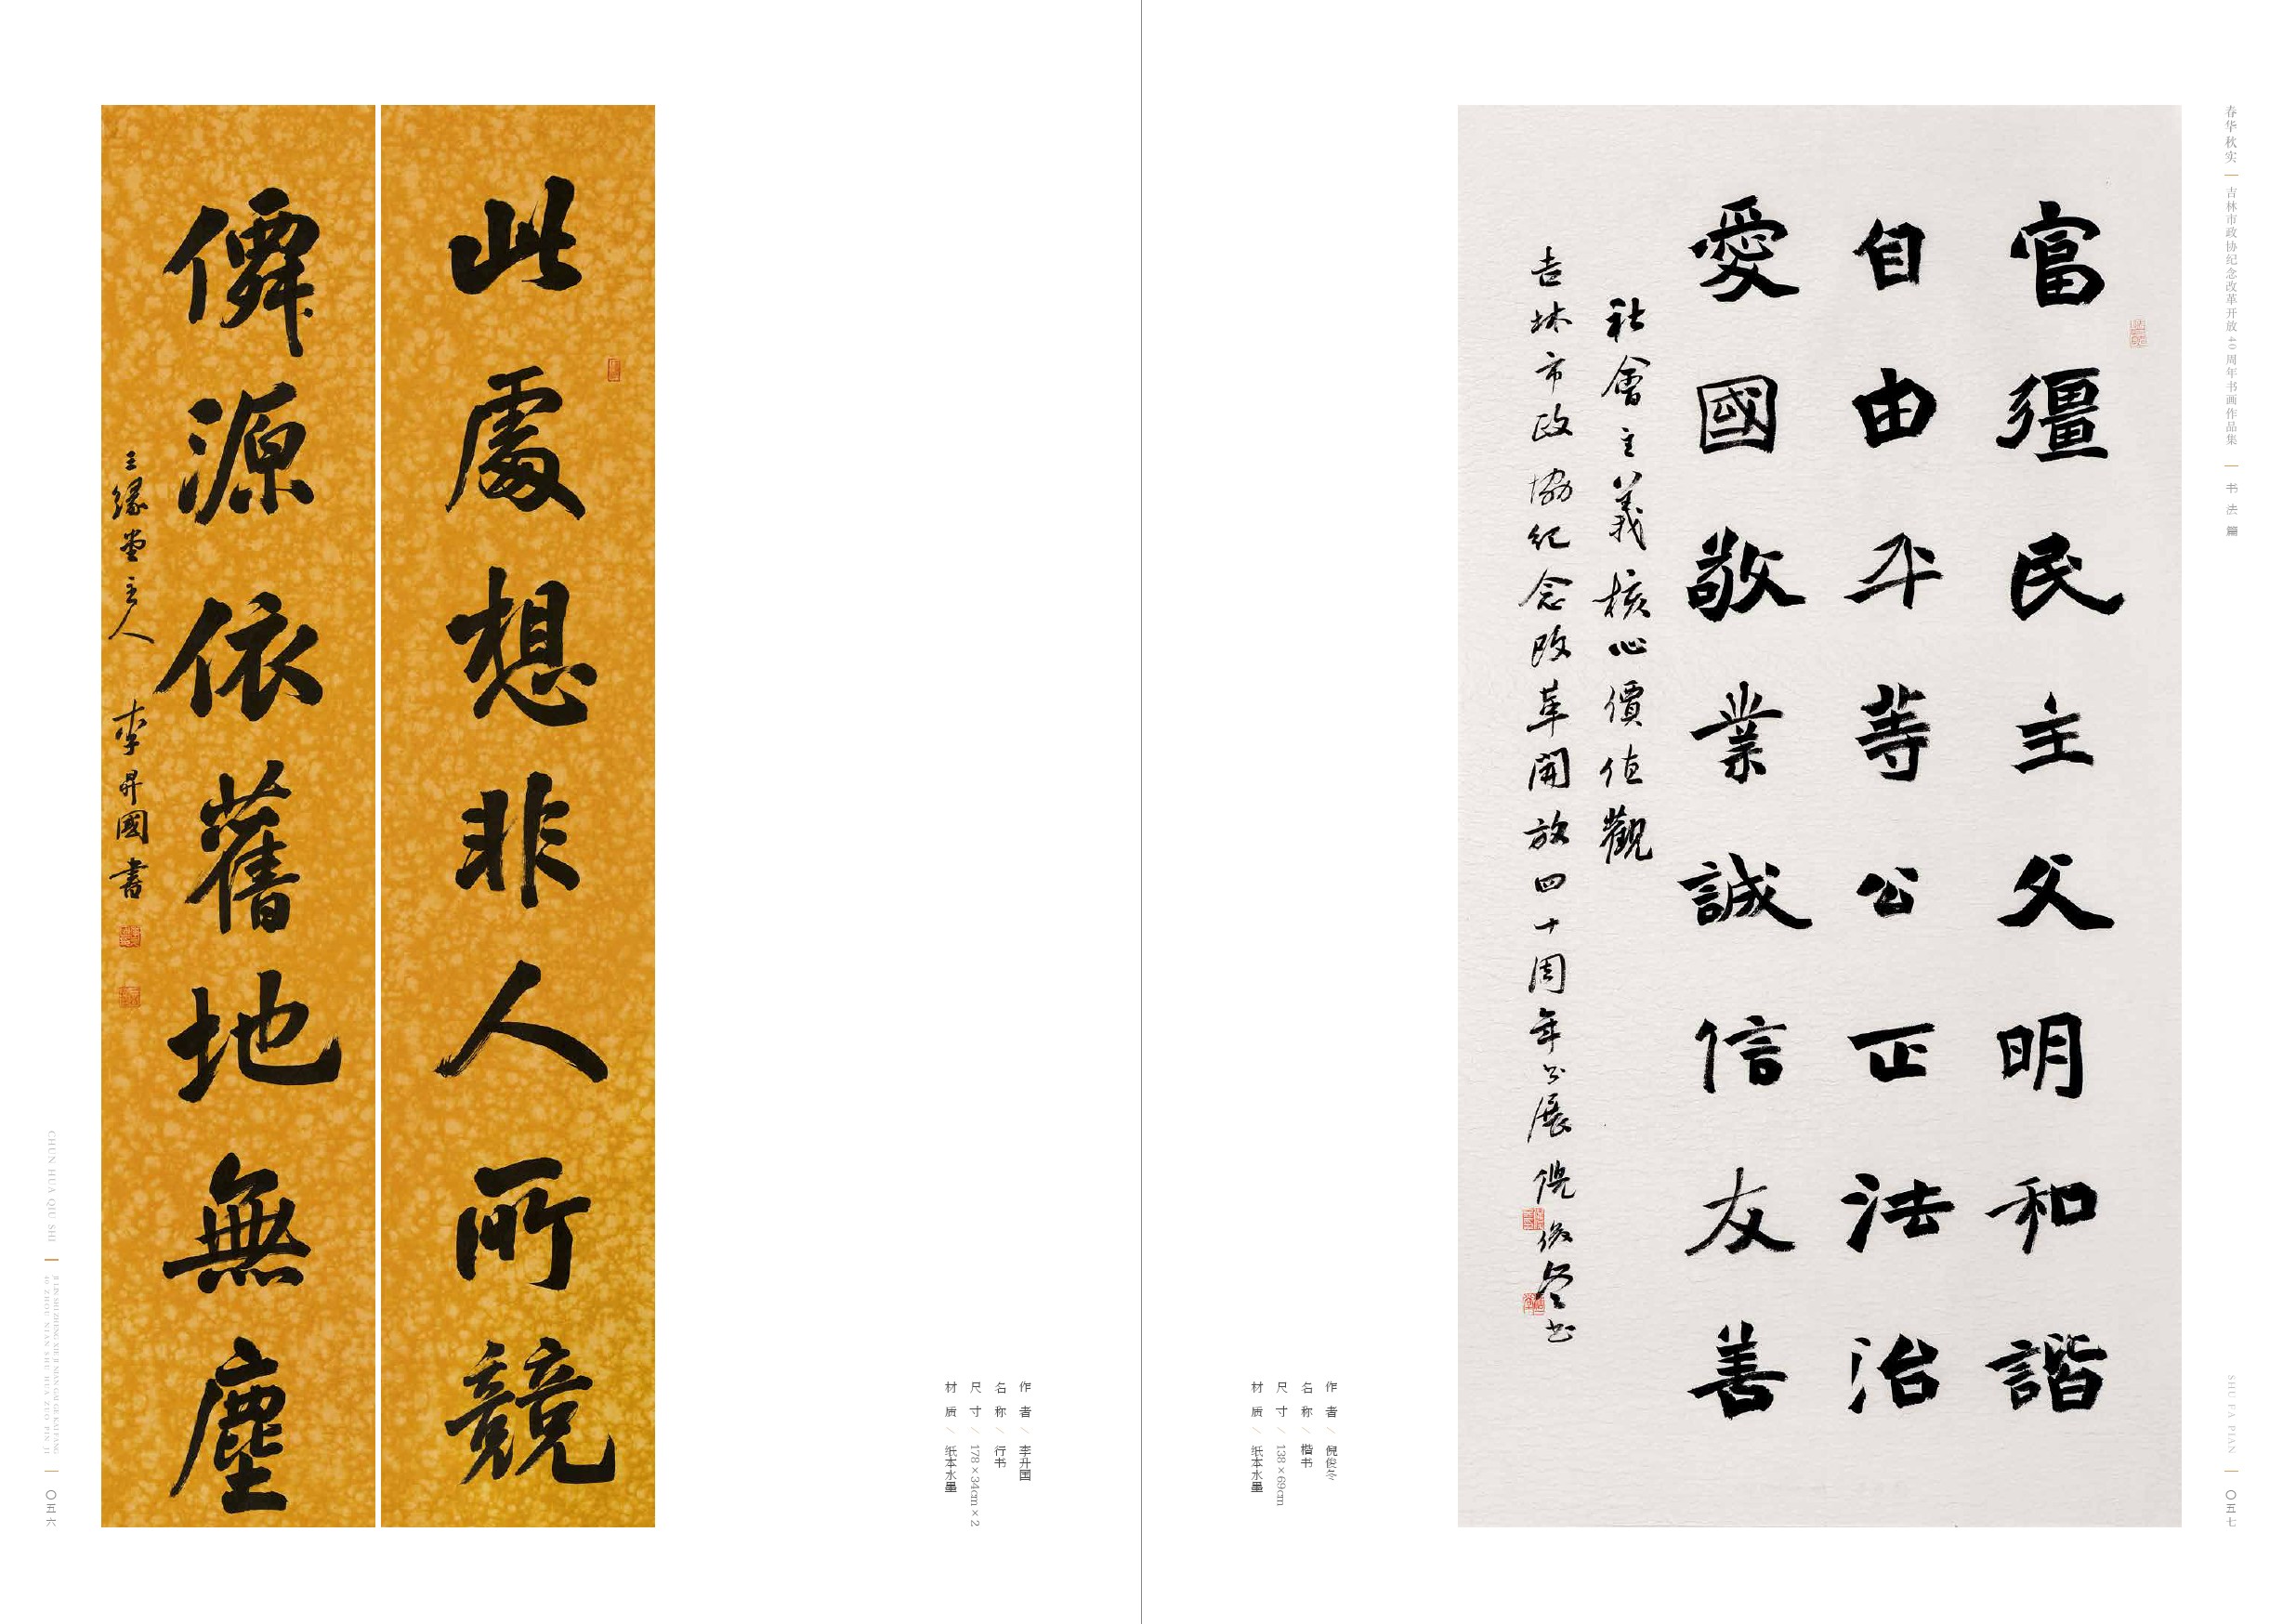 此處想非人所競
僊源依舊地無塵
三缘堂主人 李昇國書
作者 / 李升国
名称 / 行书
尺寸 / 178×34cm×2
材质 / 纸本水墨
CHUN HUA QIU SHI
JI LIN SHI ZHENG XIE JI NIAN GAI GE KAI FANG
40 ZHOU NIAN SHU HUA ZUO PIN JI
〇五六
春华秋实
吉林市政协纪念改革开放40周年书画作品集
书法篇
富彊民主文明和諧
自由平等公正法治
愛國敬業誠信友善
社會主義核心價值觀
吉林市政協纪念改革開放四十周年书展 倪俊奎书
作者 / 倪俊奎
名称 / 楷书
尺寸 / 138×69cm
材质 / 纸本水墨
SHU FA PIAN
〇五七